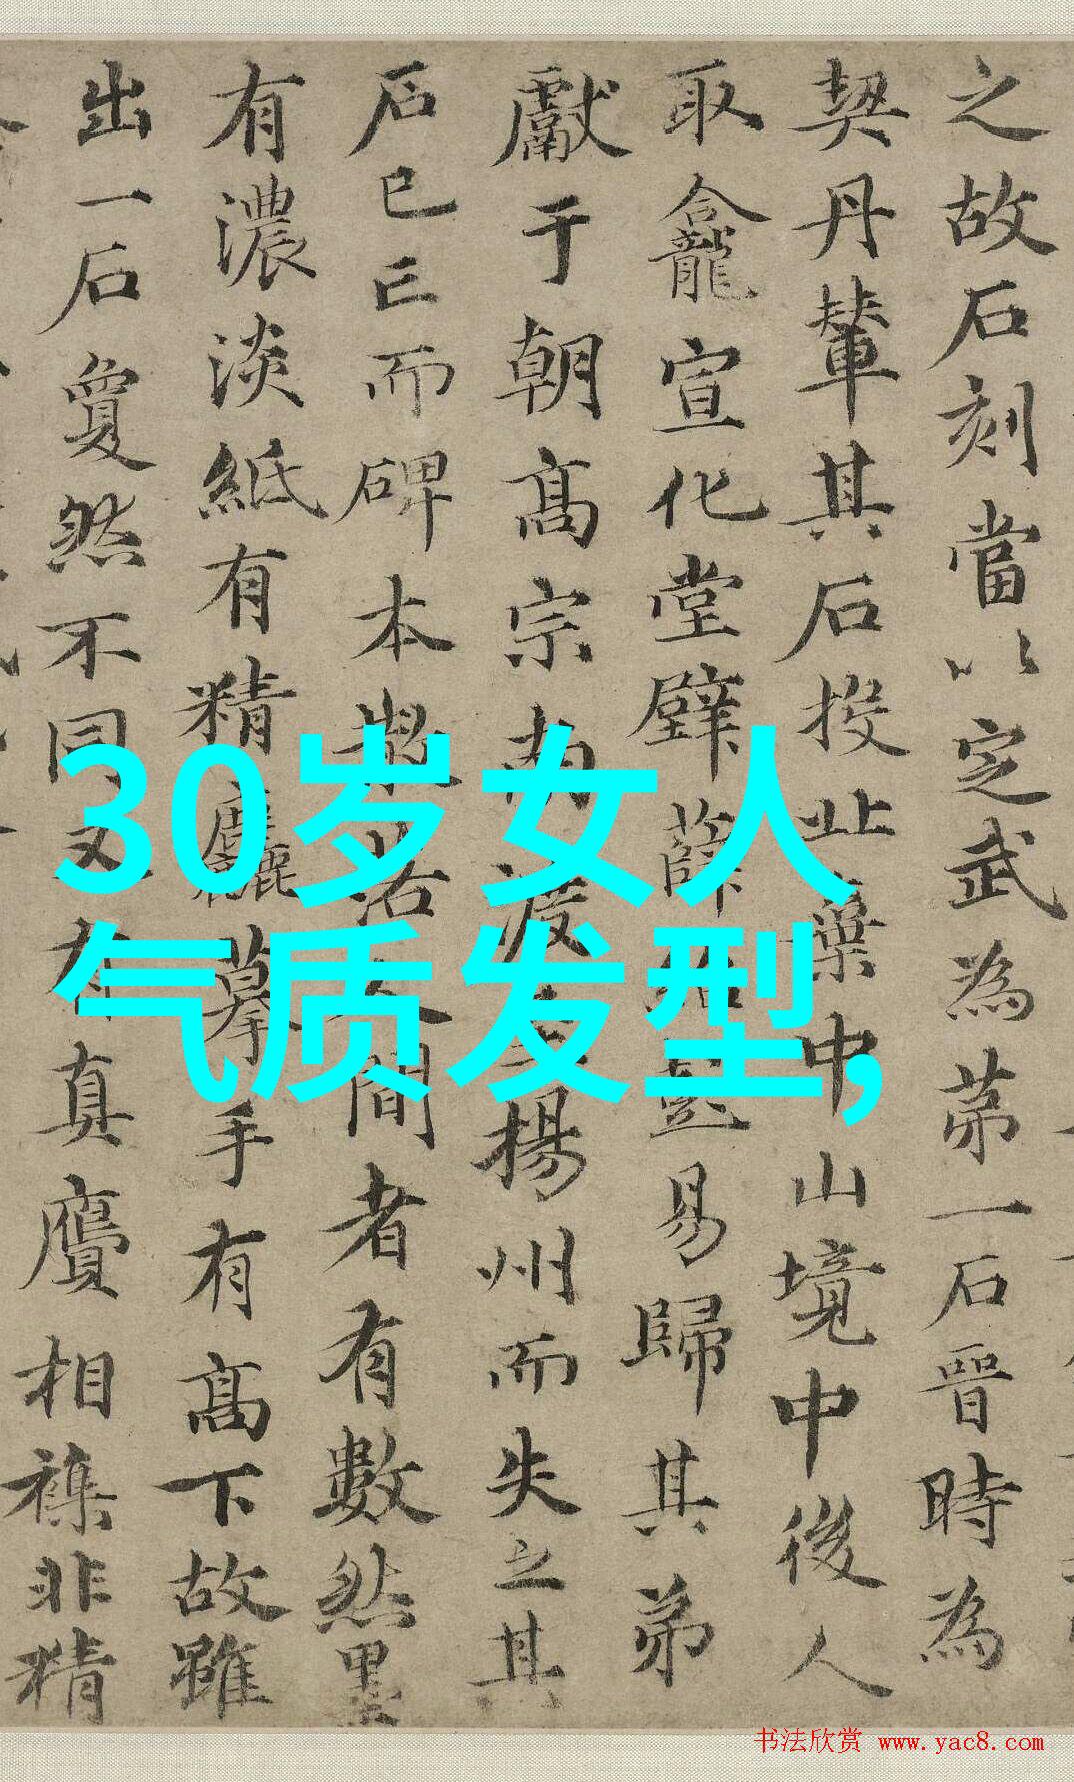 之故石刻當以定武為苐一石晉時為
契丹輦其石投止棄中山境中後人
取龕宣化堂壁薛紹彭易歸其弟
獻于朝高宗南渡揚州而失之其
石已亡而碑本散落人間者有數然墨
有濃淡紙有精麤摹手有高下故雖
出一石敻然不同又有真贋相襍非精
30岁女人
气质发型,
书法欣赏 www.yac8.com